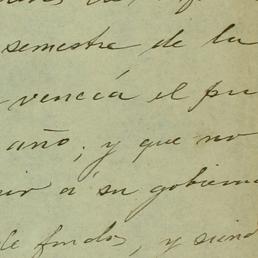 semestre de la
vencía el pu
año; y que no
á su gobierno
de fondos, y siend